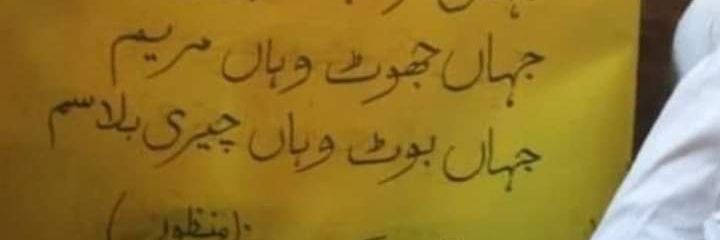 جہاں جھوٹ وہاں مریم
جہاں بوٹ وہاں چیری بلاسم
(منظور